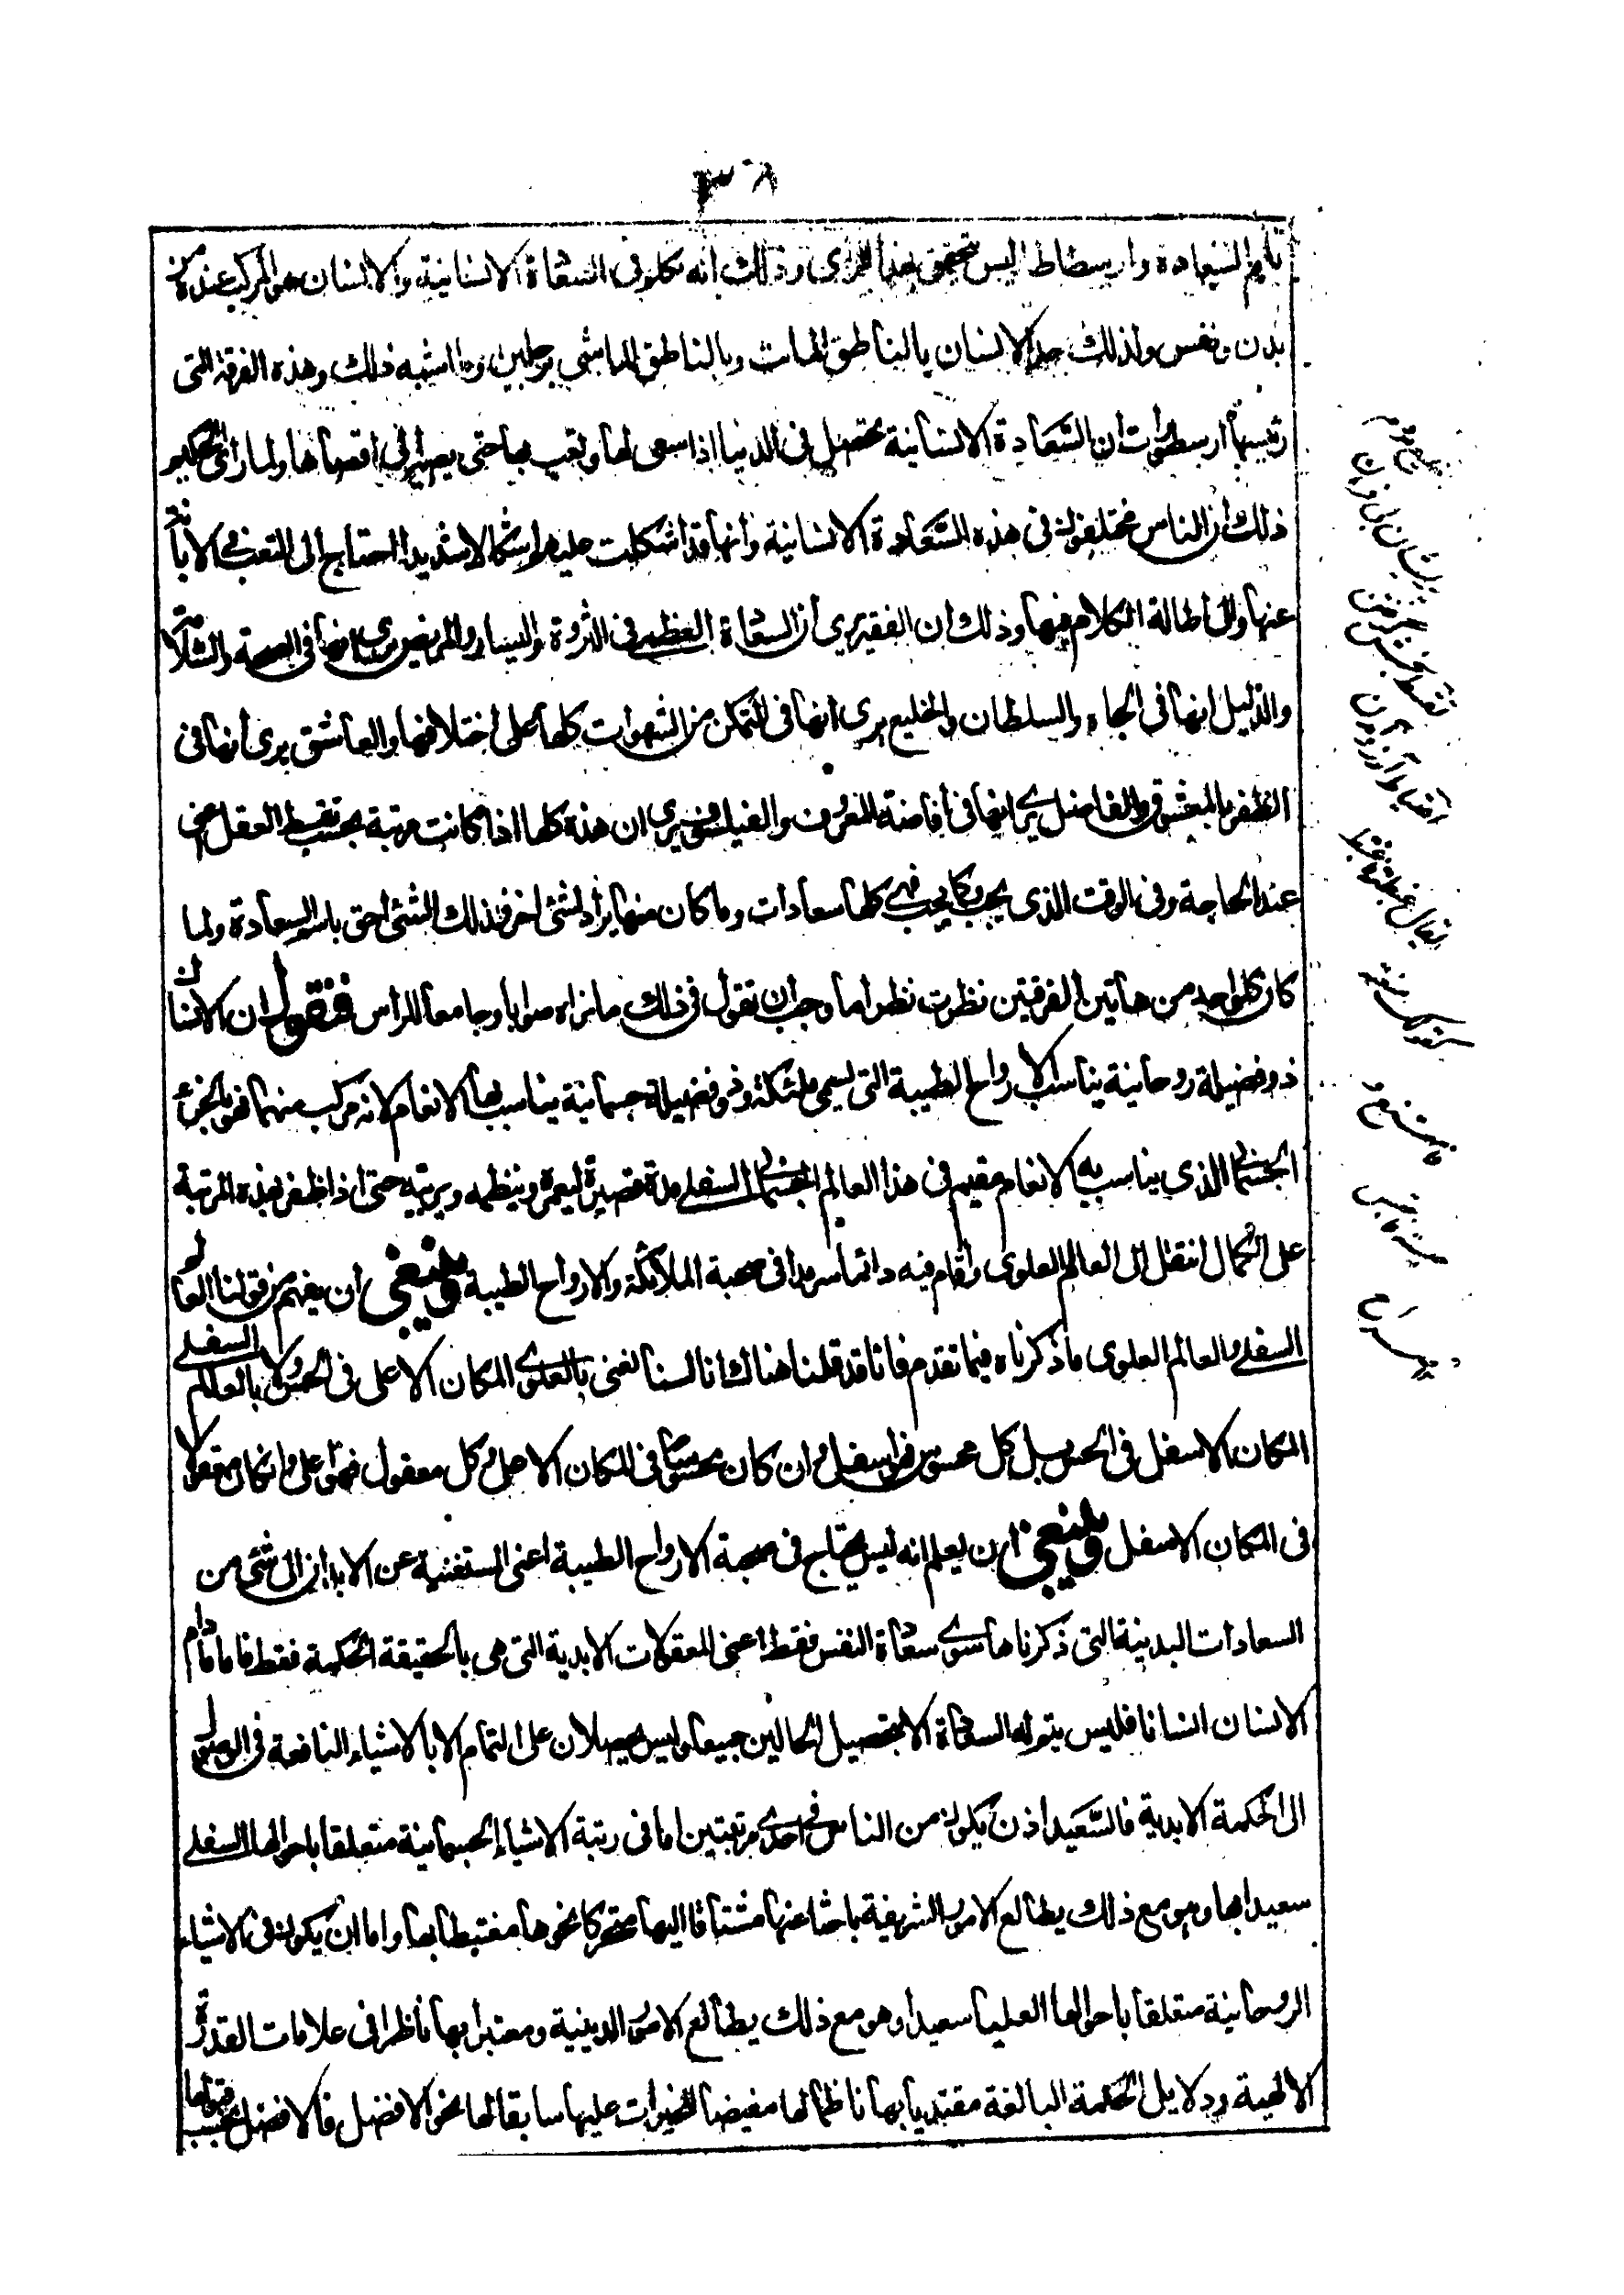 ٣٨
تام السعادة وأرسطاطاليس يتحقق بهذا الرأى وذلك انه تكلم فى السعادة الانسانية والانسان هو المركب عنده من
بدن ونفس ولذلك حد الانسان بالناطق المائت وبالناطق الماشى برجلين وما اشبه ذلك وهذه الفرقة التى
رئيسها ارسطو رات ان السعادة الانسانية تحصل فى الدنيا اذا سعى لها وتعب بها حتى يصير الى اقصاها ولما راى الحكيم
ذلك وان الناس مختلفون فى هذه السعادة الانسانية وانها قد اشكلت عليهم اشكالا شديدا احتاج الى التعب فى الابانة
عنها والى اطالة الكلام فيها وذلك ان الفقير يرى ان السعادة العظمى فى الثروة واليسار والمريض يرى انها فى الصحة والسلامة
والذليل انها فى الجاه والسلطان والخليع يرى انها فى التمكن من الشهوات كلها على اختلافها والعاشق يرى انها فى
الظفر بالمعشوق والفاضل يرى انها فى افاضة المعروف والفيلسوف يرى ان هذه كلها اذا كانت مرتبة بحسب تقسيط العقل اعنى
عند الحاجة وفى الوقت الذى يجب وكما يجب فهى كلها سعادات وما كان منها يراد لشئ اخر فذلك الشئ احق باسم السعادة ولما
كان كل واحد من هاتين الفرقتين نظرت نظرا ما وجب ان نقول فى ذلك ما نراه صوابا وجامعا للرأى فنقول ان الانسان
ذو فضيلة روحانية يناسب بها الارواح الطيبة التى تسمى ملئكة وذو فضيلة جسمانية يناسب بها الانعام لانه مركب منهما فهو بالجزء
الجسمانى الذى يناسب به الانعام مقيم فى هذا العالم الجسمانى السفلى مدة قصيرة ليعمره وينظمه ويرتبه حتى اذا ظفر بهذه المرتبة
على الكمال انتقل الى العالم العلوى واقام فيه دائما سرمدا فى صحبة الملائكة والارواح الطيبة وينبغى ان يفهم من قولنا العالم
السفلى والعالم العلوى ما ذكرناه فيما تقدم فانا قد قلنا هناك انا لسنا نعنى بالعلوى المكان الاعلى فى الحس ولا بالعالم السفلى
المكان الاسفل فى الحس بل كل محسوس فهو اسفل وان كان محسوسا فى المكان الاعلى وكل معقول فهو اعلى وان كان معقولا
فى المكان الاسفل وينبغى ان يعلم انه ليس يحتاج فى صحبة الارواح الطيبة اعنى المستغنية عن الابدان الى شئ من
السعادات البدنية التى ذكرناها سوى سعادة النفس فقط اعنى المعقولات الابدية التى هى بالحقيقة الحكمة فقط فاما ما دام
الانسان انسانا فليس يتم له السعادة الا بتحصيل الحالين جميعا وليس يحصلان على التمام الا بالاشياء النافعة فى الوصول
الى الحكمة الابدية فالسعيد اذن يكون من الناس فى احدى مرتبتين اما فى رتبة الاشياء الجسمانية متعلقا باحوالها السفلى
سعيدا بها وهو مع ذلك يطالع الامور الشريفة باحثا عنها مشتاقا اليها متحركا نحوها مغتبطا بها واما ان يكون فى الاشياء
الروحانية متعلقا باحوالها العليا سعيدا وهو مع ذلك يطالع الامور الدينية ومعتبرا بها ناظرا فى علامات القدرة
الالهية ودلايل الحكمة البالغة مقتديا بها ناظما لها مفيضا للخيرات عليها سابقا لها نحو الافضل فالافضل بحسب قبولها